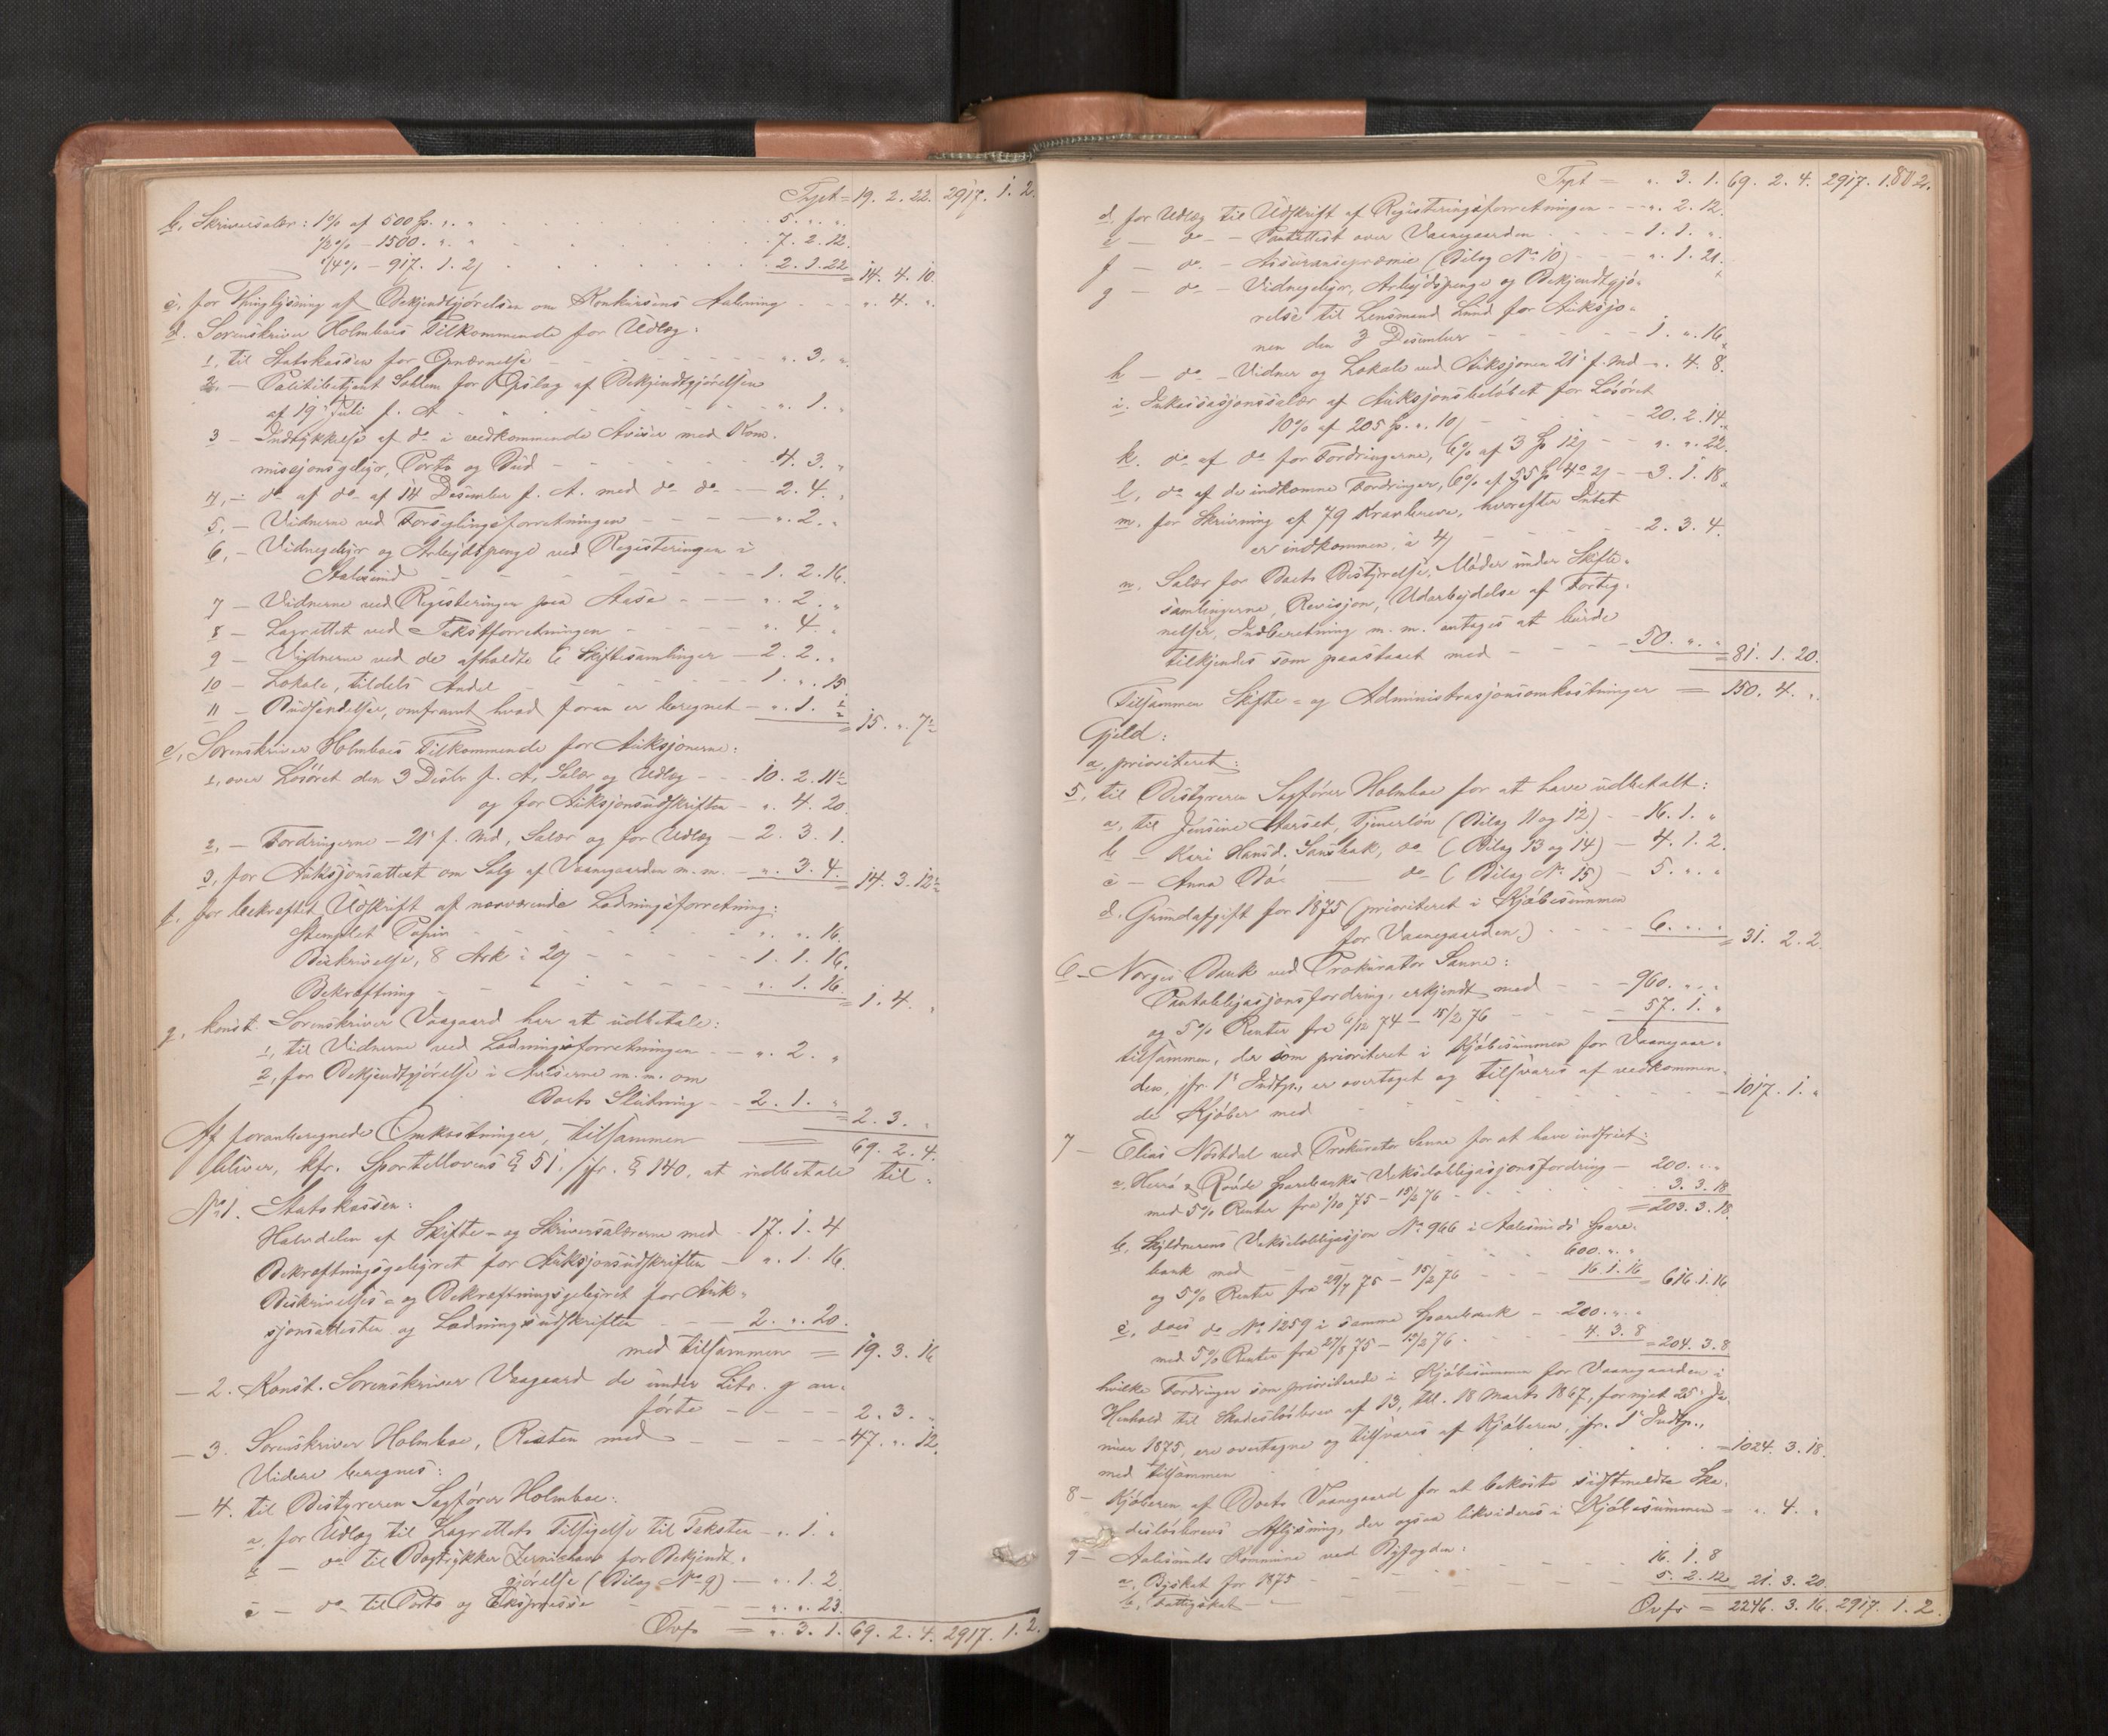 Trpt = 19. 2. 22. 2917. 1. 2.
b, Skriversalær: 1% af 500 Sp. „. „ . . . 5. „. „
1/2% – 1500. „. „ . . . 7. 2. 12.
1/4% – 917. 1. 2 . . . 2. 1. 22 = 14. 4. 10.
c, for Thinglysning af Bekjendtgjørelsen om Konkursens Aabning . . „. 4. „.
d. Sorenskriver Holmboes Tilkommende for Udlæg:
1, til Statskassen for Opnævnelse – – – „. 3. „.
2, – Politibetjent Sahlem for Opslag af Bekjendtgjørelsen
af 19 Juli f. A. – – – „. 1. „
3 – Indrykkelse af do i vedkommende Aviser med Kom.
missjonsgebyr, Porto og Bud – – – 4. 3. „
4, – do af do af 14 Desember f. A. med do do – – 2. 4. „
5, – Vidnerne ved Forseglingsforretningen – – – „. 2. „
6, – Vidnegebyr og Arbejdspenge ved Registeringen i
Aalesund – – – 1. 2. 16.
7 – Vidnerne ved Registeringen paa Aase – – – „. 2. „
8 – Lagrettet ved Takstforretningen – – – „. 4. „
9 – Vidnerne ved de afholdte 6 Skiftesamlinger – 2. 2. „
10 – Lokale, tildels Andel – – – 1. „. 15
11 – Budsendelser, omframt hvad foran er beregnet – „. 1. ½ = 15. „. 7½
e, Sorenskriver Holmboes Tilkommende for Auksjonerne:
1, over Løsøret den 3 Desbr f. A, Salær og Udlæg – – 10. 2. 11½
og for Auksjonsudskriften – „. 4. 20.
2, – Fordringerne – 21' f. Md, Salær og for Udlæg – 2. 3. 1.
3, for Auksjonsattest om Salg af Vaanegaarden m. m. – „. 3. 4. = 14. 3. 12½
f, for bekræftet Udskrift af nærværende Lodningsforretning:
Stemplet Papir – – – „. „. 16.
Beskrivelse, 8 Ark à 20 – – – 1. 1. 16.
Bekræftning – – – „. 1. 16. = 1. 4. „
g, konst. Sorenskriver Vaagaard har at udbetale:
1, til Vidnerne ved Lodningsforretningen – – „. 2. „
2, for Bekjendtgjørelse i Aviserne m. m. om
Boets Slutning – – 2. 1. „ = 2. 3. „
Af foranberegnede Omkostninger, tilsammen = 69. 2. 4.
bliver, kfr. Sportellovens § 51, jfr. § 140, at indbetale til
No 1. Statskassen:
Halvdelen af Skifte- og Skriversalærerne med – 17. 1. 4
Bekræftningsgebyret for Auksjonsudskriften – „. 1. 16.
Beskrivelses- og Bekræftningsgebyret for Auk-
sjonsattesten og Lodningsudskriften – – 2. „. 20.
med tilsammen = 19. 3. 16
– 2. Konst. Sorenskriver Vaagaard de under Litr. g an-
førte – – – 2. 3. „
– 3. Sorenskriver Holmboe, Resten med – – – 47. „. 12.
Videre beregnes:
– 4. til Bestyreren Sagfører Holmboe:
a, for Udlæg til Lagrettets Tilsigelse til Taksten – „. 1. „
b – do til Bogtrykker for Bekjendt-
gjørelse (Bilag No 9) – „. 1. 2
c – do til Porto og Ekspresse – – – „. „. 23.
Ovfr = „. 3. 1. 69. 2. 4. 2917. 1. 2.
Trpt = „. 3. 1. 69. 2. 4. 2917. 1. 2.
802.
d, for Udlæg til Udskrift af Registeringsforretningen – – „. 2. 12.
e – do – Pantattest over Vaanegaarden . . – 1. 1. „
f – do – Assuransepræmie (Bilag No 10) – – „. 1. 21.
g – do – Vidnegebyr, Arbejdspenge og Bekjendtgjø-
relse til Lensmand Lund for Auksjo-
nen den 3 Desember – – – 1. „. 16.
h – do – Vidner og Lokale ved Auksjonen 21' f. Md – „. 4. 8.
i. Inkassasjonssalær af Auksjonsbeløbet for Løsøret
10% af 205 Sp. „. 10 – – – 20. 2. 14.
k. do af do for Fordringerne, 6% af 3 Sp 12 – – „. „. 22.
l, do af de indkomne Fordringer, 6% af 55 Sp 4 2 – – 3. 1. 18.
m. for Skrivning af 79 Kravbreve, hvorefter Intet
er indkommen, à 4 – – – 2. 3. 4.
n. Salær for Boets Bestyrelse, Møder under Skifte-
samlingerne, Revisjon, Udarbejdelse af Forteg-
nelser, Indberetning m. m. antages at burde
tilkjendes som paastaaet med – – – 50. „. „ = 81. 1. 20.
Tilsammen Skifte- og Administrasjonsomkostninger = 150. 4. „.
Gjeld:
a, prioriteret:
5, til Bestyreren Sagfører Holmboe for at have udbetalt:
a, til Jensine Aarset, Tjenerløn (Bilag 11 og 12) – – 16. 1. „
b – Kari Hansd. , do (Bilag 13 og 14) – 4. 1. 2.
c – Anna Bø do (Bilag No 15) – 5. „. „
d. Grundafgift for 1875 (prioriteret i Kjøbesummen
for Vaanegaarden) . . . – 6. „. „ = 31. 2. 2.
6 – Norges Bank ved Prokurator Sanne:
Pantobligasjonsfordring, erkjendt med – – 960. „. „
og 5% Renter fra 6/12 74 – 15/2 76 – – – 57. 1. „
tilsammen, der som prioriteret i Kjøbesummen for Vaanegaar-
den, jfr. 1' Indtp., er overtaget og tilsvares af vedkommen-
de Kjøber med – – – = 1017. 1. „
7 – Elias Nostdal ved Prokurator Sanne for at have indfriet:
a, Herrø & Røvde Sparebanks Vekselobligasjonsfordring – 200. „. „
med 5% Renter fra 1/10 75 – 15/2 76 – . . . 3. 3. 18.
= 203. 3. 18.
b, Skyldnerens Vekselobligasjon No 966 i Aalesunds Spare-
bank med – – – 600. „. „
og 5% Renter fra 29/7 75 – 15/2 76 – – – 16. 1. 16 = 616. 1. 16
c, dens do No 1259 i samme Sparebank – 200. „. „
med 5% Renter fra 27/8 75 – 15/2 76 . . . 4. 3. 8 = 204. 3. 8
hvilke Fordringer som prioriterede i Kjøbesummen for Vaanegaarden i
Henhold til Skadesløsbrev af 13, tbl. 18 Marts 1867, fornyet 25' Ja-
nuar 1875, ere overtagne og tilsvares af Kjøberen, jfr. 1' Indtp.,
med tilsammen . . . = 1024. 3. 18.
8 – Kjøberen af Boets Vaanegaard for at bekoste sidstmeldte Ska-
desløsbrevs Aflysning, der ogsaa likvideres i Kjøbesummen = „. 4. „
9 – Aalesunds Kommune ved Byfogden:
a, Byskat for 1875 – – – 16. 1. 8
b, Fattigskat – – – 5. 2. 12 21. 3. 20.
Ovfr = 2246. 3. 16. 2917. 1. 2.